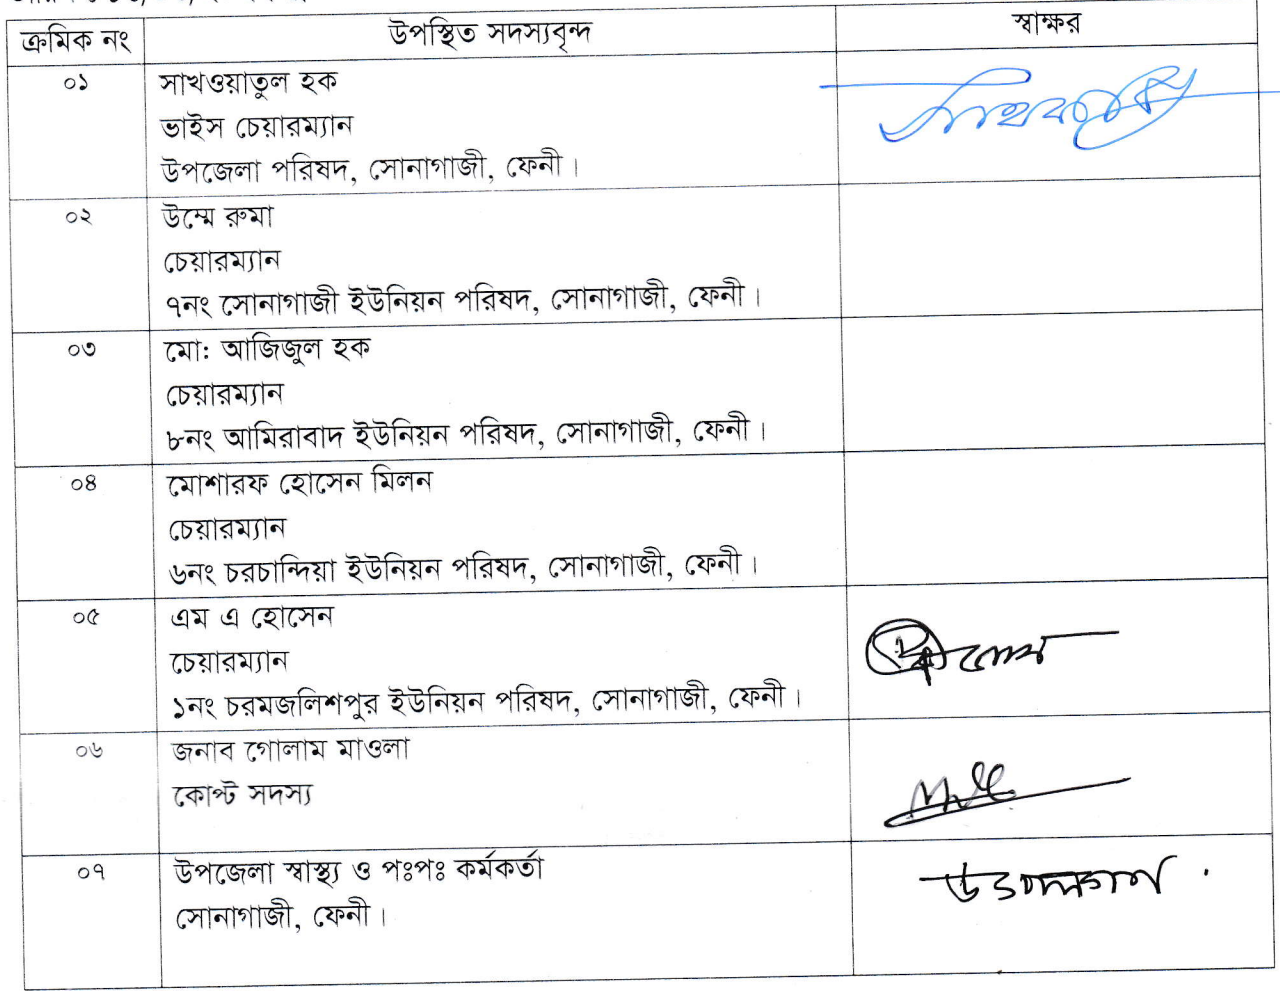 ক্রমিক নং উপস্থিত সদস্যবৃন্দ স্বাক্ষর
০১ সাখওয়াতুল হক
ভাইস চেয়ারম্যান
উপজেলা পরিষদ, সোনাগাজী, ফেনী।
০২ উম্মে রুমা
চেয়ারম্যান
৭নং সোনাগাজী ইউনিয়ন পরিষদ, সোনাগাজী, ফেনী।
০৩ মো: আজিজুল হক
চেয়ারম্যান
৮নং আমিরাবাদ ইউনিয়ন পরিষদ, সোনাগাজী, ফেনী।
০৪ মোশারফ হোসেন মিলন
চেয়ারম্যান
৬নং চরচান্দিয়া ইউনিয়ন পরিষদ, সোনাগাজী, ফেনী।
০৫ এম এ হোসেন
চেয়ারম্যান
১নং চরমজলিশপুর ইউনিয়ন পরিষদ, সোনাগাজী, ফেনী।
০৬ জনাব গোলাম মাওলা
কোপ্ট সদস্য
০৭ উপজেলা স্বাস্থ্য ও পঃপঃ কর্মকর্তা
সোনাগাজী, ফেনী।